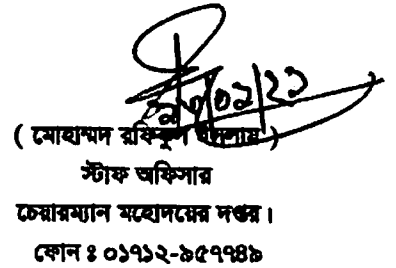 ( মোহাম্মদ রফিকুল ইসলাম )
স্টাফ অফিসার
চেয়ারম্যান মহোদয়ের দপ্তর।
ফোন ঃ ০১৭১২-৯৫৭৭৪৯